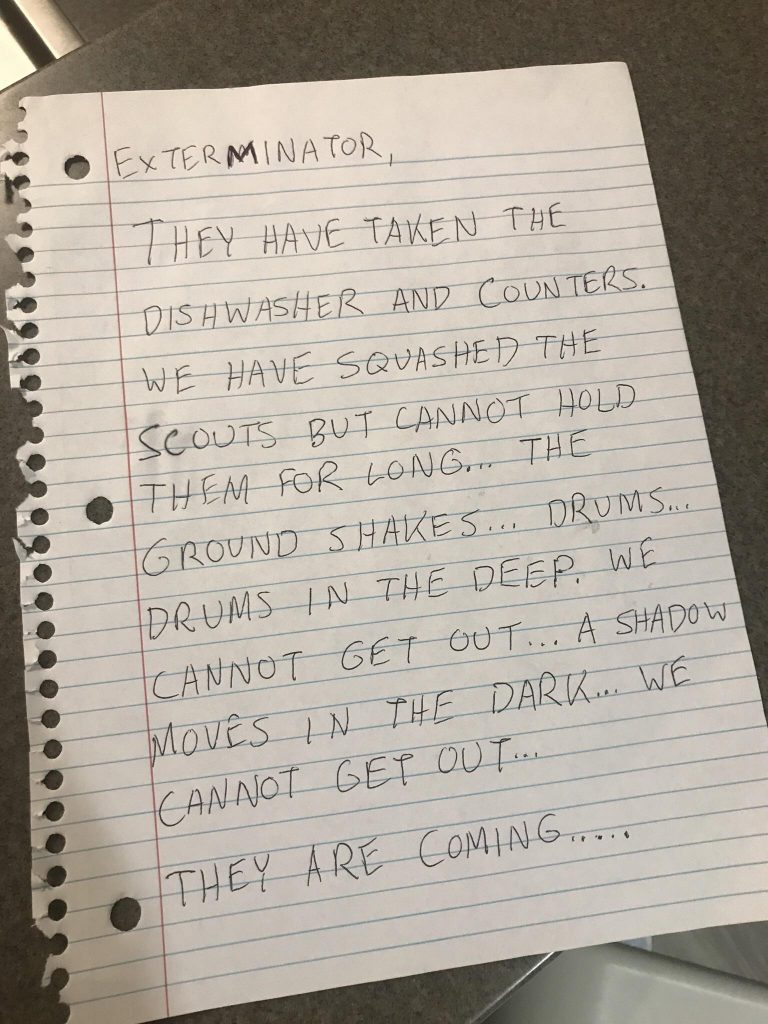 EXTERMINATOR,
THEY HAVE TAKEN THE
DISHWASHER AND COUNTERS.
WE HAVE SQUASHED THE
SCOUTS BUT CANNOT HOLD
THEM FOR LONG... THE
GROUND SHAKES... DRUMS...
DRUMS IN THE DEEP. WE
CANNOT GET OUT... A SHADOW
MOVES IN THE DARK... WE
CANNOT GET OUT...
THEY ARE COMING.....